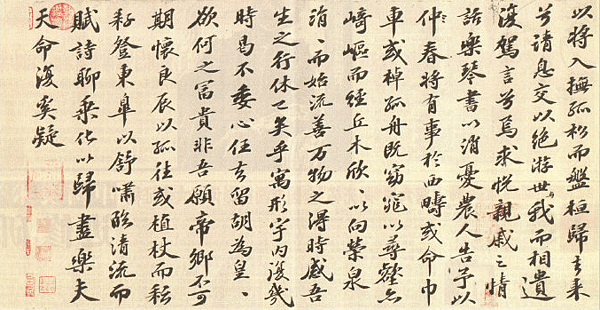 以将入撫孤松而盤桓歸去来
兮請息交以絶游世我而相遺
復駕言兮焉求悅親戚之情
話樂琴書以消憂農人告予以
仲春將有事於西疇或命巾
車或棹孤舟既窈窕以尋壑亦
崎嶇而經丘木欣、以向榮泉
涓、而始流善万物之得時感吾
生之行休已矣乎寓形宇内復幾
時曷不委心任去留胡為皇、
欲何之冨貴非吾願帝鄉不可
期懷良辰以孤往或植杖而耘
耔登東皐以舒嘯臨清流而
賦詩聊乘化以歸盡樂夫
天命復奚疑